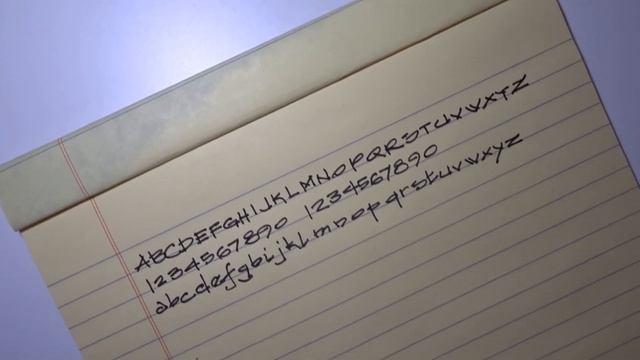 ABCDEFGHIJKLMNOPQRSTUVWXYZ
1234567890 1234567890
abcdefghijklmnopqrstuvwxyz